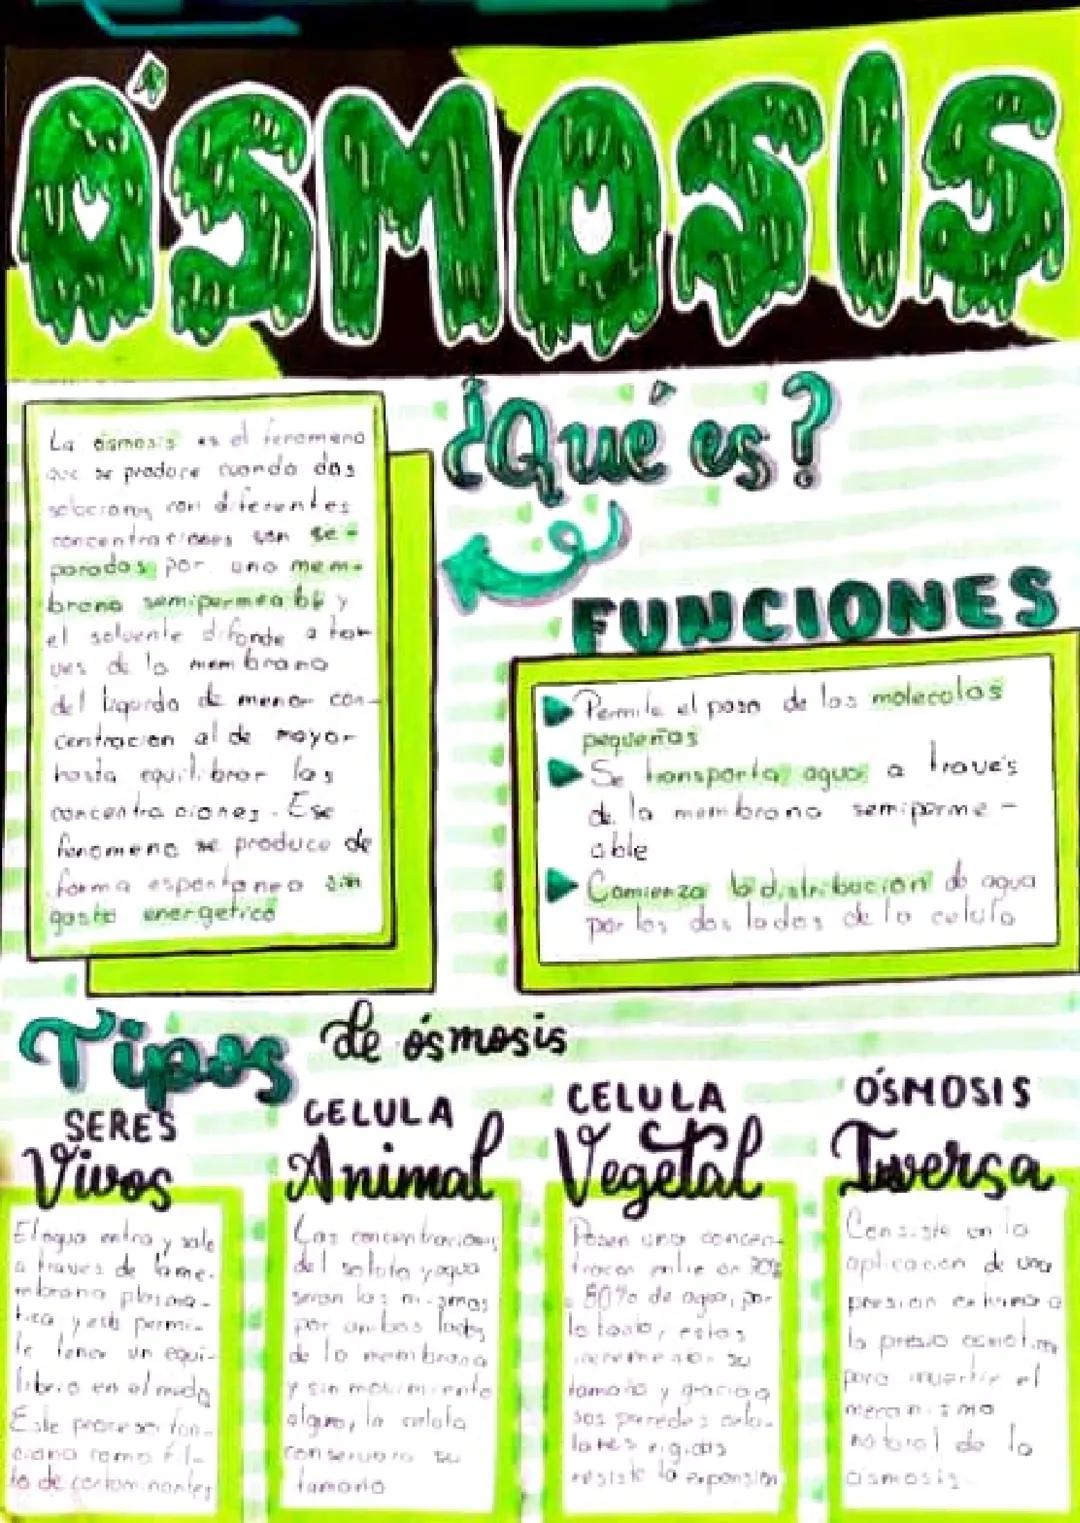 ÓSMOSIS
¿Qué es?
La ósmosis es el fenomeno
que se produce cuando dos
soluciones con diferentes
concentraciones son se-
paradas por una mem-
brana semipermeable y
el solvente difunde a tra
ves de la membrana
del liquido de menor con-
centracion al de mayor
hasta equilibrar las
concentraciones. Ese
fenomeno se produce de
forma espontanea sin
gasto energetico
FUNCIONES
Permite el paso de las moleculas
pequeñas
Se transporta agua a través
de la membrana semiperme-
able
Comienza la distribucion de agua
por los dos lados de la celula
Tipos de ósmosis
SERES
Vivos
El agua entra y sale
a traves de la me-
mbrana plasma-
tica y esto permi-
te tener un equi-
librio en el medio
Este proceso fun-
ciona como
de contaminantes
CELULA
Animal
Las concentraciones
del soluto y agua
seran las mismas
por ambos lados
de la membrana
y sin movimiento
alguno, la celula
conservara su
tamaño
CELULA
Vegetal
Poseen una concen-
tracion entre un
80% de agua, por
lo tanto, estas
su
tamaño y gracias a
sus paredes celu-
lares rigidas
resiste la expansion
ÓSMOSIS
Inversa
Consiste en la
aplicacion de una
presion externa a
la
para invertir el
mecanismo
natural de la
ósmosis.